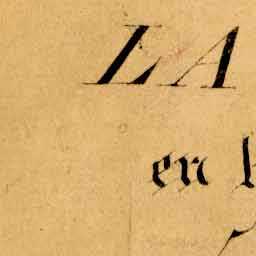 LA
en